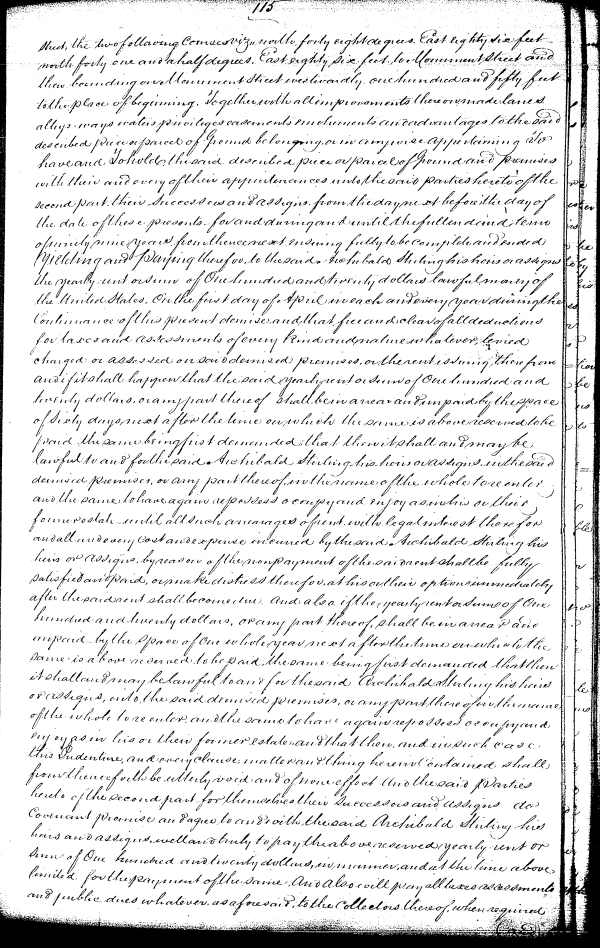 115
street, the two following courses viz, north forty eight degrees. East eighty six feet
north forty one and a half degrees. East eighty six feet, to Monument Street and
then bounding on Monument Street westwardly one hundred and fifty feet
to the place of beginning. Together with all improvements thereon made lanes
alleys ways waters privileges easements emoluments and advantages to the said
described piece or parcel of Ground belonging, or in anywise appertaining To
have and To hold, the said described piece or parcel of Ground and premises
with their and every of their appurtenances unto the said parties hereto of the
second part. their Successors and assigns. from the day next before the day of
the date of these presents. for and during and until the full end and term
of ninety nine years from thence next ensuing fully to be complete and ended
Yielding and paying therefor, to the said Archibald Stirling his heirs or assigns
the yearly rent or sum of One hundred and twenty dollars lawful money of
the United States, On the first day of April in each and every year during the
Continuance of this present demise, and that free and clear of all deductions
for taxes and assessments of every kind and nature whatever, levied
charged or assessed on said demised premises, or the rent issuing therefrom
and if it shall happen that the said yearly rent or sum of One hundred and
twenty dollars, or any part thereof shall be in arrear and unpaid by the space
of Sixty days next after the time on which the same is above reserved to be
paid the same being first demanded, that then it shall and may be
lawful to and for the said Archibald Stirling his heirs or assigns, in the said
demised premises, or any part thereof, in the name of the whole to reenter
and the same to have again repossess occupy and enjoy as in his or their
former estate until all such arrearages of rent, with legal interest therefor
and all and every cost and expense incurred by the said Archibald Stirling his
heirs or assigns, by reason of the nonpayment of the said rent shall be fully
satisfied and paid, or make distress therefor, at his or their option immediately
after the said rent shall become due. And also if the yearly rent or sum of One
hundred and twenty dollars, or any part thereof, shall be in arrear and
unpaid by the space of One whole year next after the time on which the
same is above reserved to be paid, the same being first demanded that then
it shall and may be lawful to and for the said Archibald Stirling his heirs
or assigns, into the said demised premises, or any part thereof in the name
of the whole to reenter, and the same to have again repossess occupy and
enjoy as in his or their former estate and that then, and in such case
this Indenture, and every clause matter and thing herein Contained shall
from thenceforth be utterly void and of none effect And the said Parties
hereto of the second part for themselves their Successors and assigns do
Covenant promise and agree to and with the said Archibald Stirling his
heirs and assigns, well and truly to pay the above reserved yearly rent or
sum of One hundred and twenty dollars, in manner, and at the time above
limited for the payment of the same. And also will pay all taxes assessments
and public dues whatever, as aforesaid, to the collectors thereof, when required